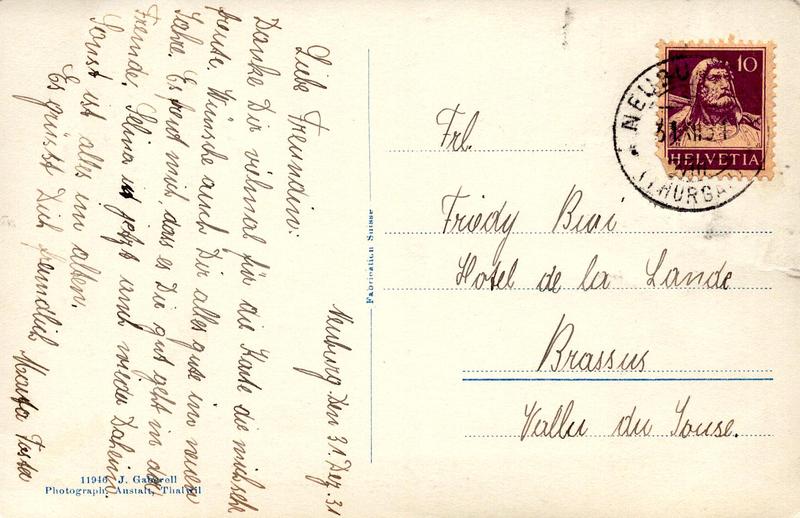 Neuburg. Den 31. Dez. 31
Liebe Freundin:
Danke Dir vielmal für die Karte die mich sehr
freute. Wünsche auch Dir alles gute im neuen
Jahre. Es freut mich, dass es Dir gut geht in der
Fremde. Selina ist jetzt auch wieder Daheim.
Sonst ist alles im alten.
Es grüsst Dich freundlich Marta
11946 J. Gaberell
Photograph. Anstalt, Thalwil
Fabrication Suisse
10
HELVETIA
31.XII.31
(THURGAU)
Frl.
Friedy
Hotel de la Lande
Brassus
Vallu du Jouse.